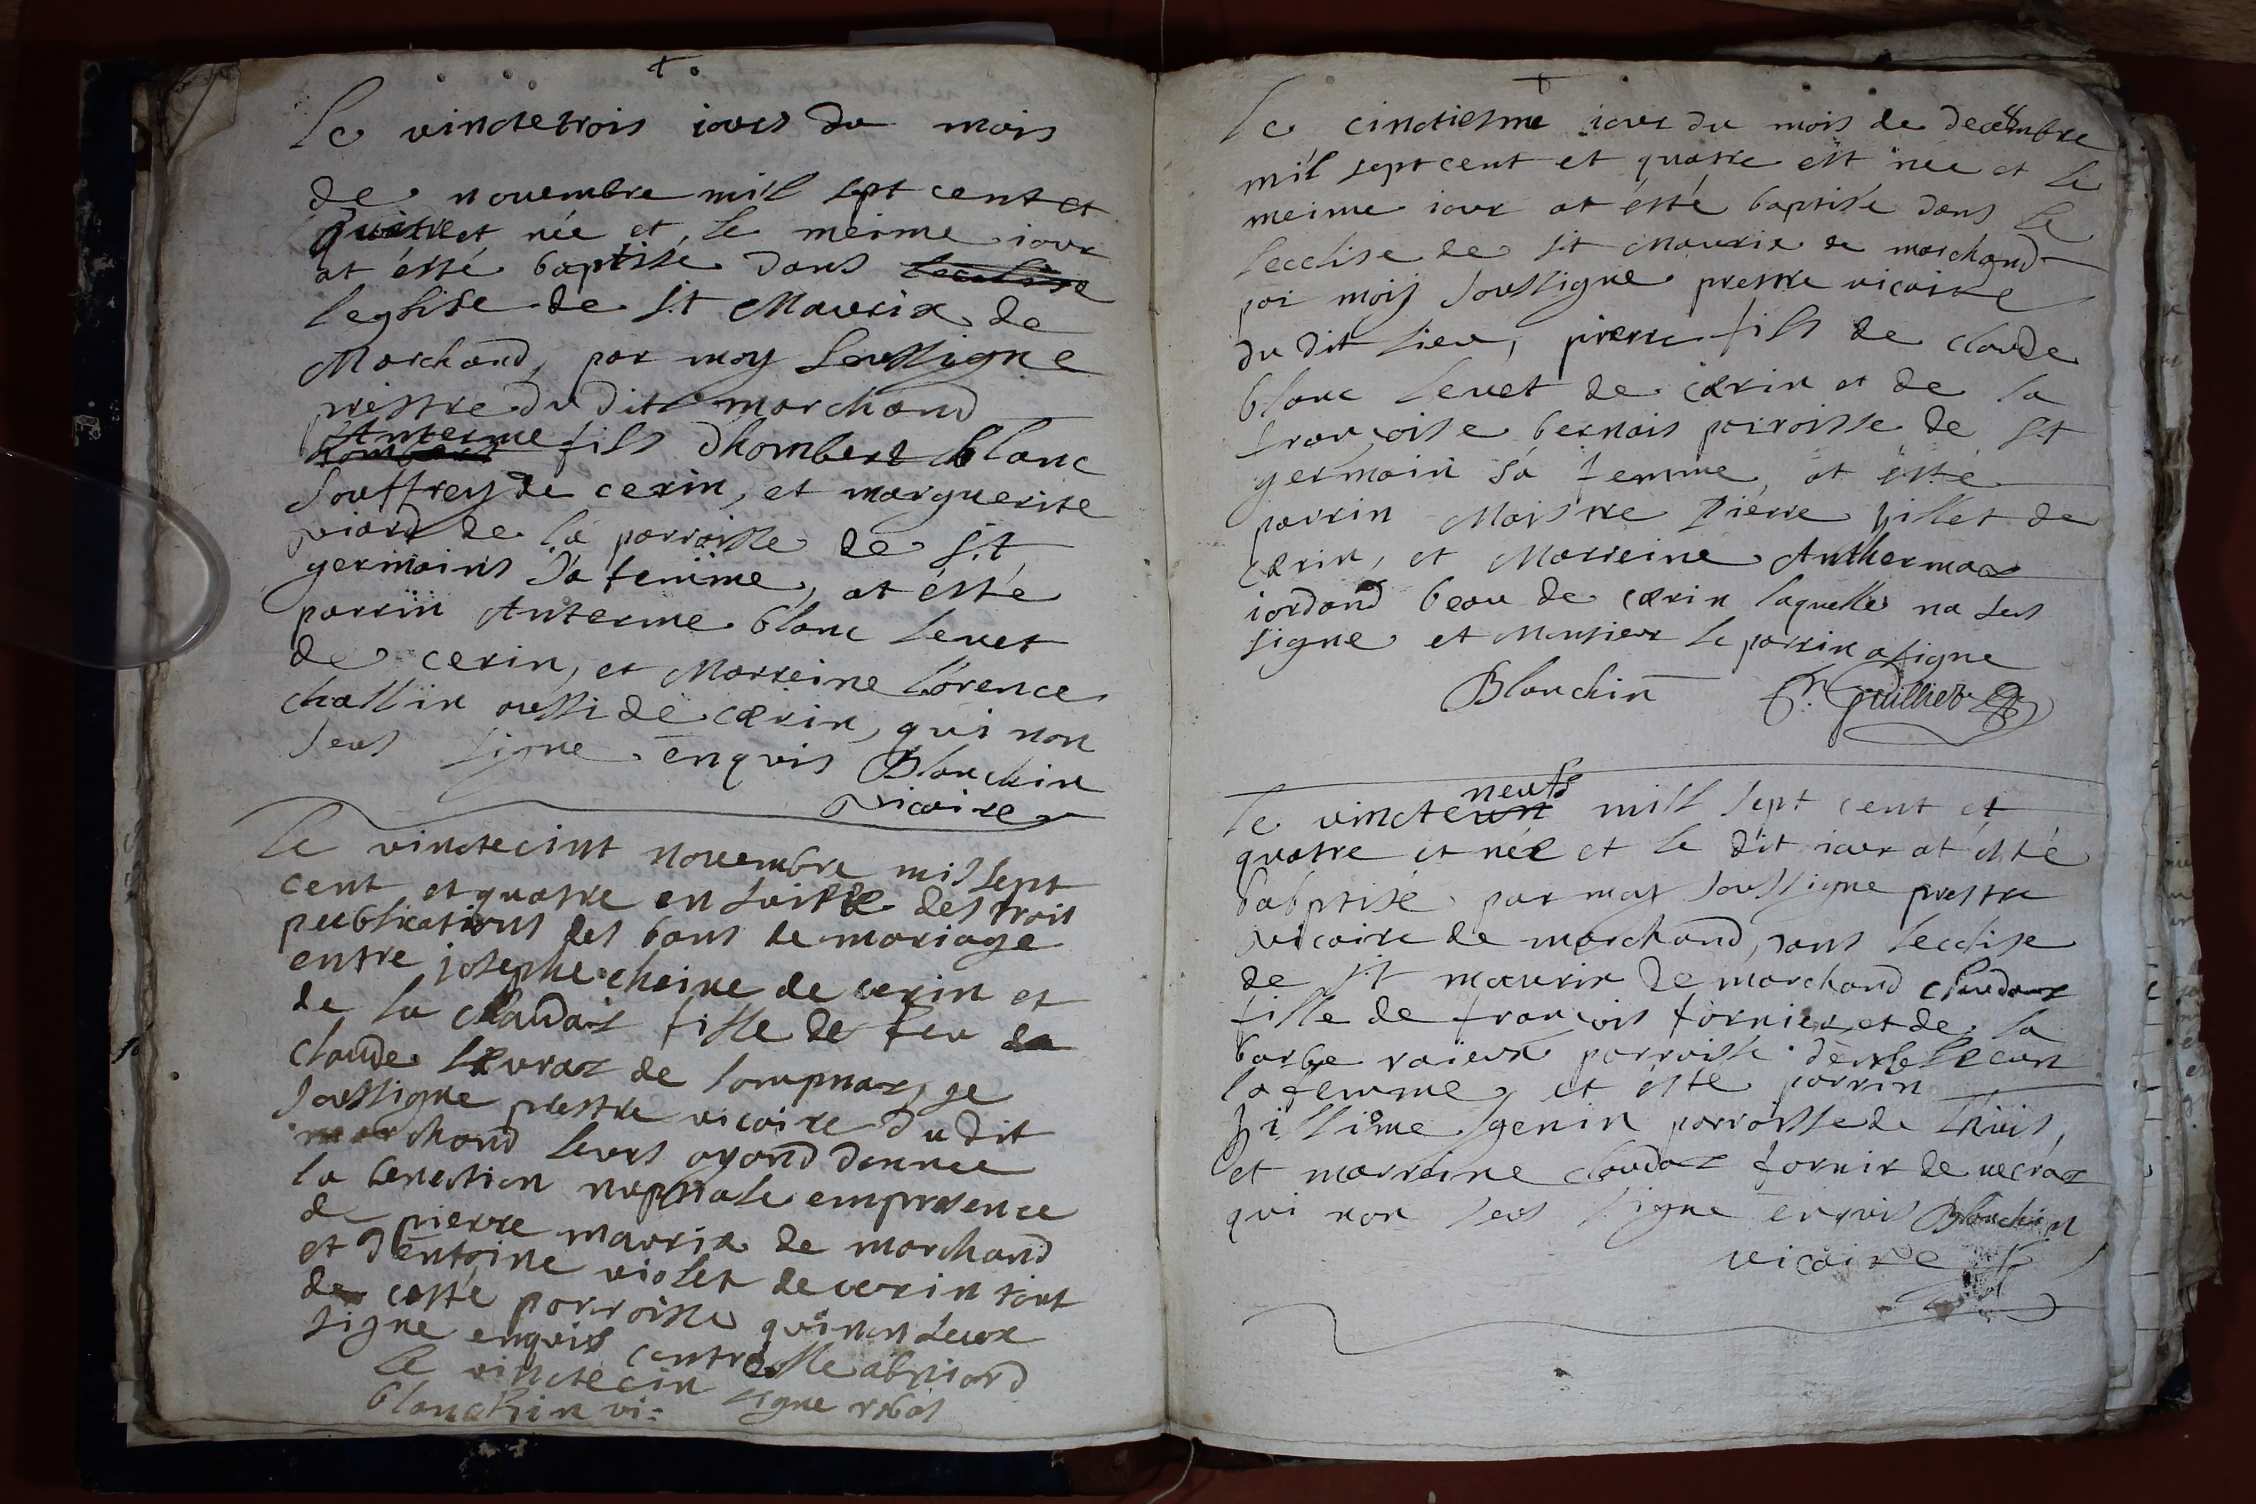 Le vinctetrois iours du mois
de novembre mil sept cent et
quatre et née et le meime iour
at ésté baptisé dans lecclise
leglise de s.t Maurix de
Marchand, par moy soussigne
prestre du dit marchand
Anterme fils dhombert blanc
souffrey de cerin, et marguerite
viard de la parroisse de s.t
germains sa femme, at ésté
parrin Anterme blanc levet
de cerin, et Marreine lorence
chassin aussi de cerin, qui non
seus signe enquis Blanchin
vicaire
Le vinctecint novembre mil sept
cent et quatre en suitte des trois
publications des bans de mariage
entre josephe cheine de cerin et
de la claudaz fille de feu
claude levraz de lompnaz, je
soussigne prestre vicaire du dit
marchand leurs ayand donnee
la benection nuptiale emprésence
de pierre maurix de marchand
et dentoine violet de cerin tout
de cesté parroisse qui non seux
signe enquis controlle
le vinctecin signe
blanchin vi:
Le cinctiesme iour du mois de decembre
mil sept cent et quatre est née et le
meime iour at ésté baptisé dans le
lecclise de s.t Maurix de marchand
par mois soussigne prestre vicaire
du dit lieu, pierre fils de claude
blanc levet de cerin et de la
francoise bernais parroisse de s.t
germain sa femme, at ésté
parrin Maistre Pierre gillet de
cerin, et Marreine Anthermaz
iordand beau de cerin laquelle na seus
signe et Monsieur le parrin a signe
Blanchin
neufs
Le vincteun mill sept cent et
quatre et née et le dit iour at ésté
babptisé par moy soussigne prestre
vicaire de marchand, dans lecclise
de s.t maurix de marchand claudaz
fille de francois fornier et de la
barbe raieux parroisse
sa femme, et ésté parrin
gillime genin parroisse de lhuis,
et marreine claudaz fornir de
qui non seus signe enquis Blanchin
vicaire